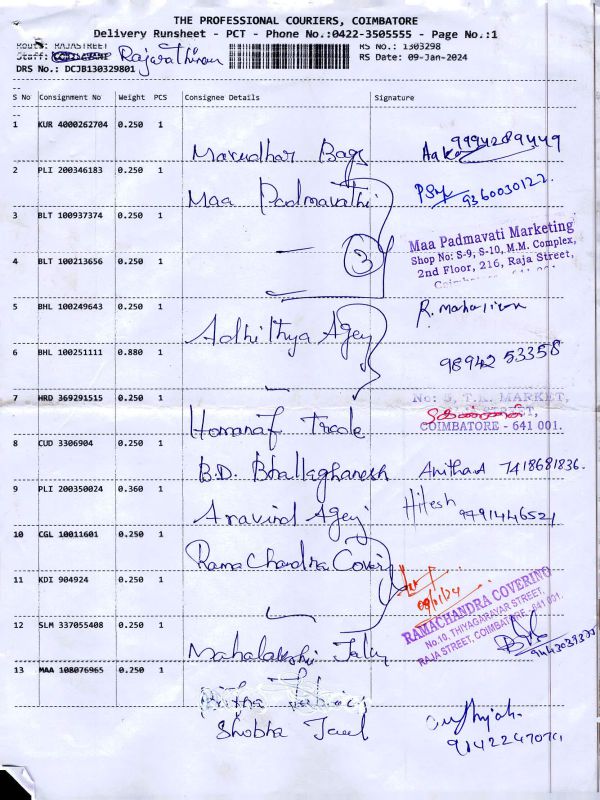 THE PROFESSIONAL COURIERS, COIMBATORE
Delivery Runsheet - PCT - Phone No.:0422-3505555 - Page No.:1
Route: RAJASTREET RS No.: 1303298
Staff: Rajarathinam RS Date: 09-Jan-2024
DRS No.: DCJB130329801
S No Consignment No Weight PCS Consignee Details Signature
1 KUR 4000262704 0.250 1
Marudhar Bags 9994289449
2 PLI 200346183 0.250 1
Maa Padmavathi 9360030122
3 BLT 100937374 0.250 1
Maa Padmavati Marketing
Shop No: S-9, S-10, M.M. Complex,
2nd Floor, 216, Raja Street,
4 BLT 100213656 0.250 1
3
5 BHL 100249643 0.250 1
Adhithya Agey R.
6 BHL 100251111 0.880 1
98942 53358
7 HRD 369291515 0.250 1
No: 5, T.K. MARKET,
STREET,
COIMBATORE - 641 001.
Trade
8 CUD 3306904 0.250 1
B.D. Bhallaghanesh 7418681836.
9 PLI 200350024 0.360 1
Aravind Agey Hitesh 9791446521
10 CGL 10011601 0.250 1
Rama Chandra Cover
11 KDI 904924 0.250 1
09/01/24
RAMACHANDRA COVERING
No.10, THIYAGARAYAR STREET,
RAJA STREET, COIMBATORE - 641 001.
12 SLM 337055408 0.250 1
Mahalakshi
13 MAA 108076965 0.250 1
Shobha